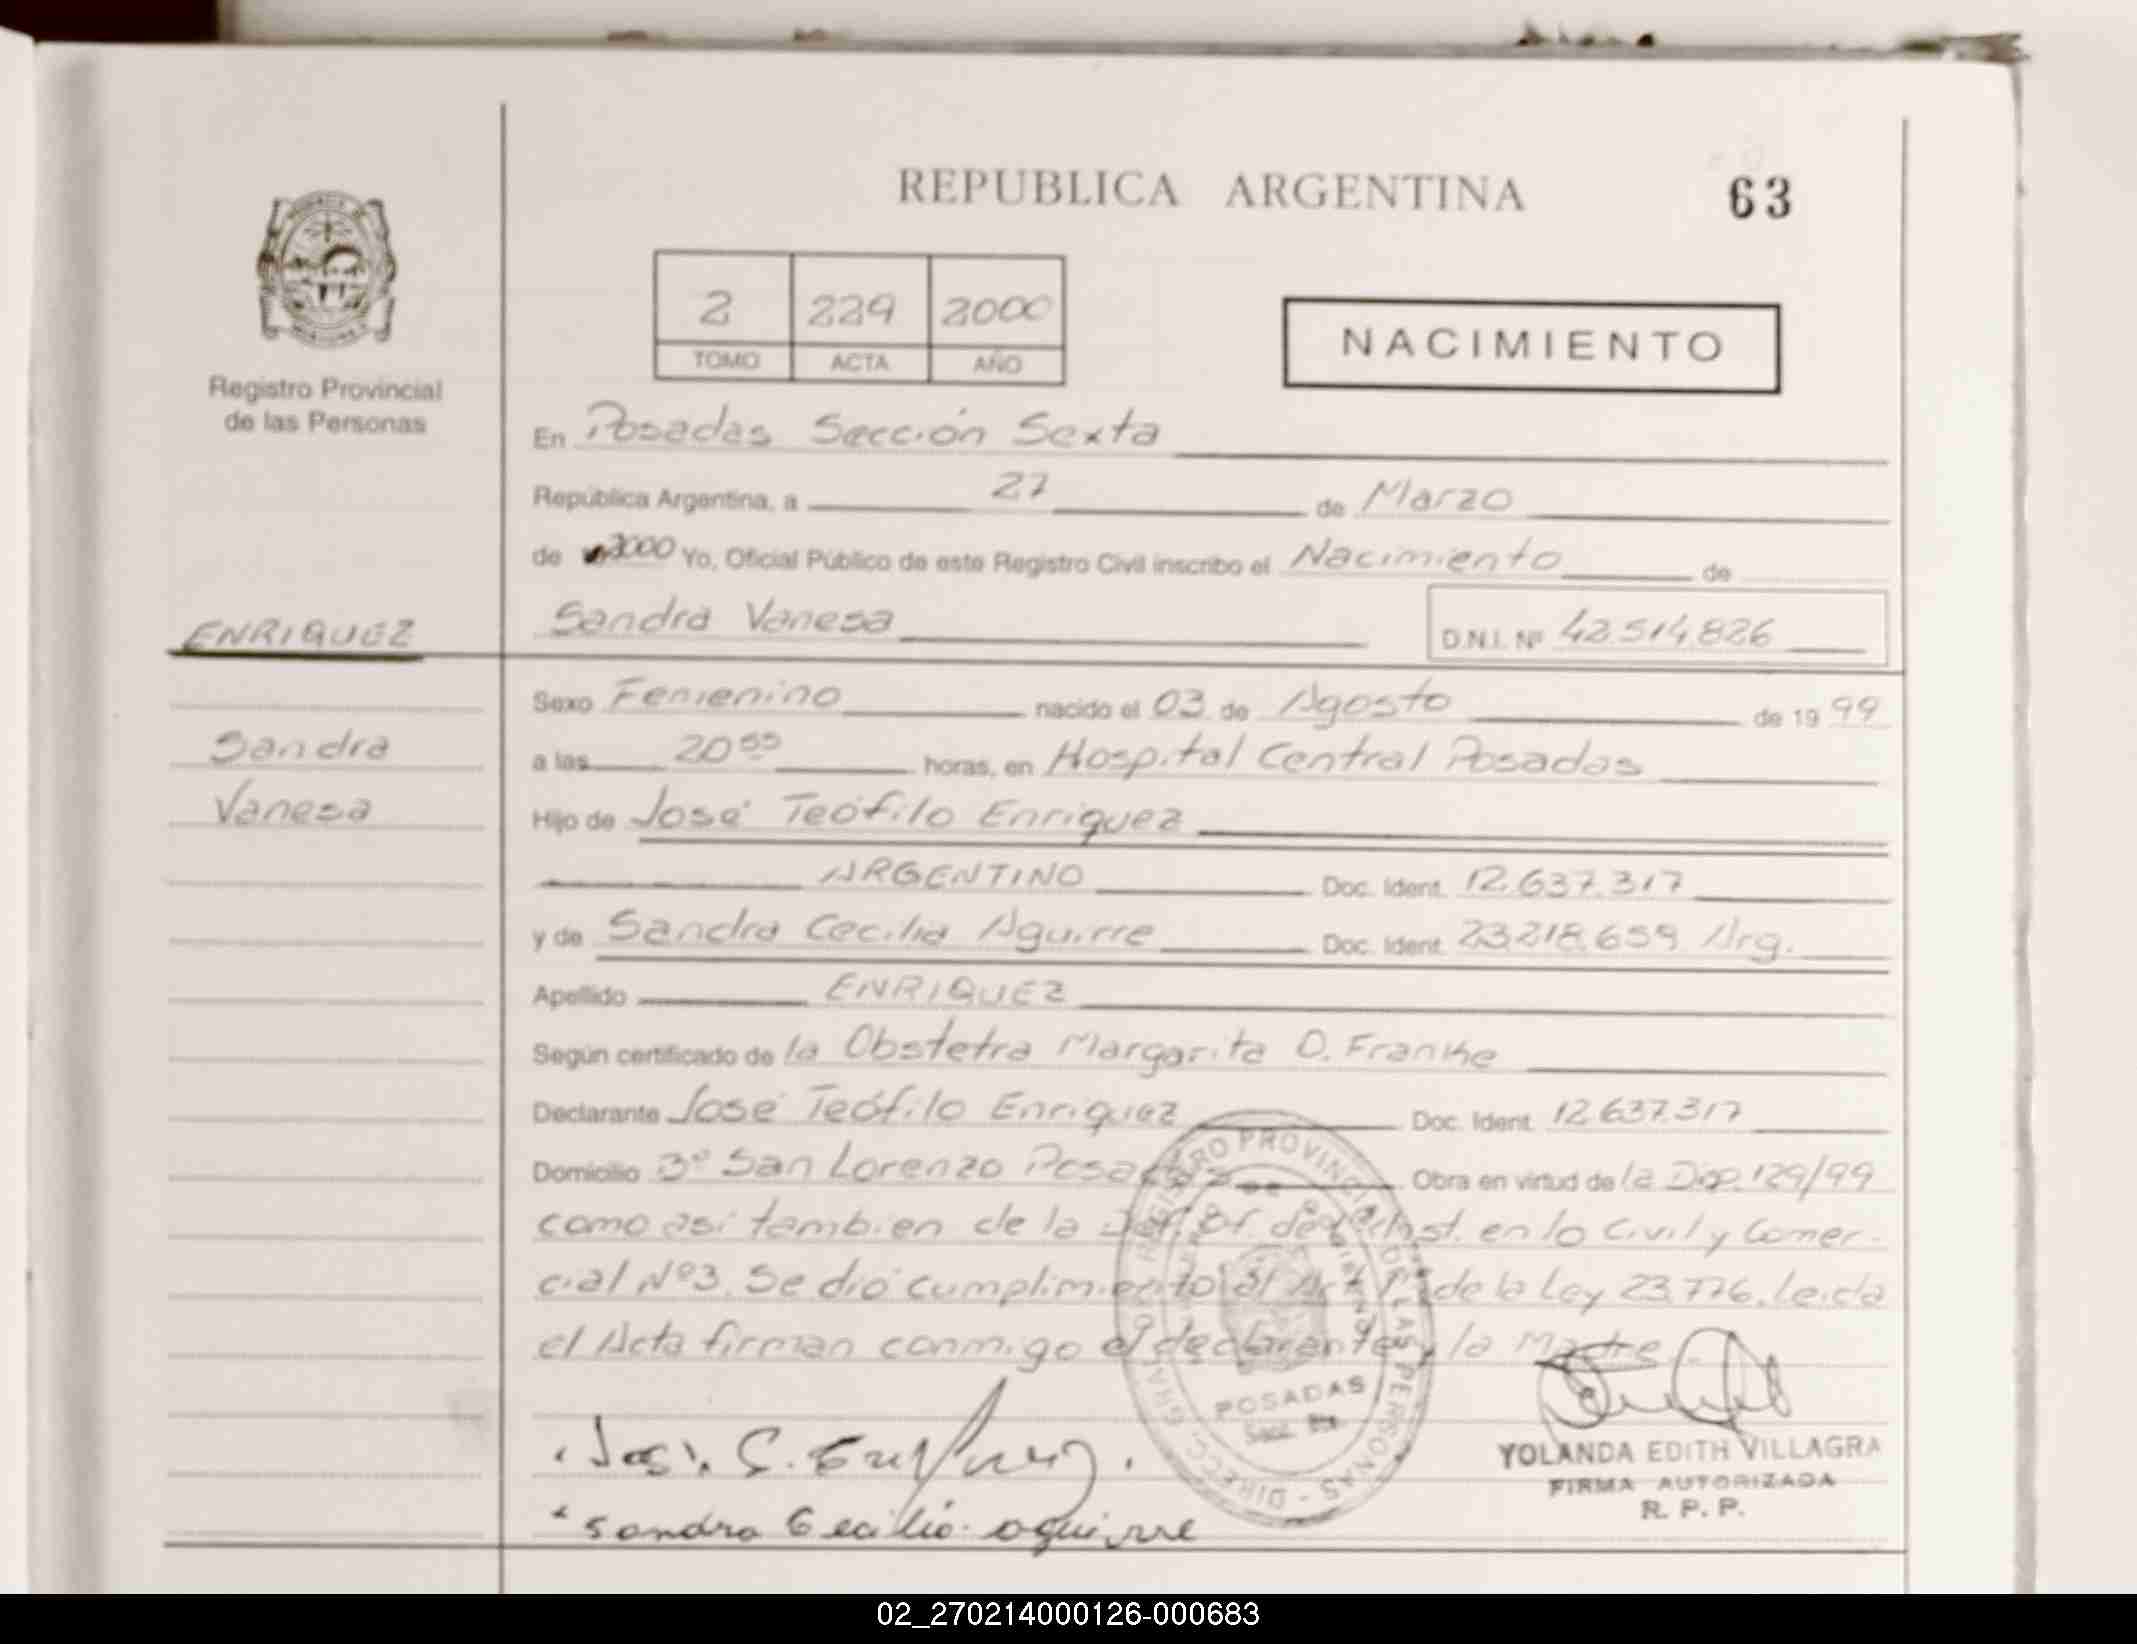 REPUBLICA ARGENTINA
63
Registro Provincial
de las Personas
2 229 2000
TOMO ACTA AÑO
NACIMIENTO
En Posadas Sección Sexta
República Argentina, a 27 de Marzo
de 2000 Yo, Oficial Público de este Registro Civil inscribo el Nacimiento de
ENRIQUEZ
Sandra Vanesa D.N.I. Nº 42.514.826
Sexo Femenino nacido el 03 de Agosto de 19 99
Sandra
Vanesa
a las 20 55 horas, en Hospital Central Posadas
Hijo de José Teófilo Enriquez
ARGENTINO Doc. Ident. 12.637.317
y de Sandra Cecilia Aguirre Doc. Ident. 23.218.659 Arg.
Apellido ENRIQUEZ
Según certificado de la Obstetra Margarita O. Franke
Declarante José Teófilo Enriquez Doc. Ident. 12.637.317
Domicilio 3º San Lorenzo Posadas Obra en virtud de la Disp. 129/99
como asi tambien de la de Inst. en lo Civil y Comer-
cial Nº3. Se dió cumplimiento al Art. de la Ley 23.776. Leida
el Acta firman conmigo el declarante y la Madre
DIRECC. GRAL. REGISTRO PROVINCIAL DE LAS PERSONAS
POSADAS
Sandra Cecilia aguirre
YOLANDA EDITH VILLAGRA
FIRMA AUTORIZADA
R. P. P.
02_270214000126-000683